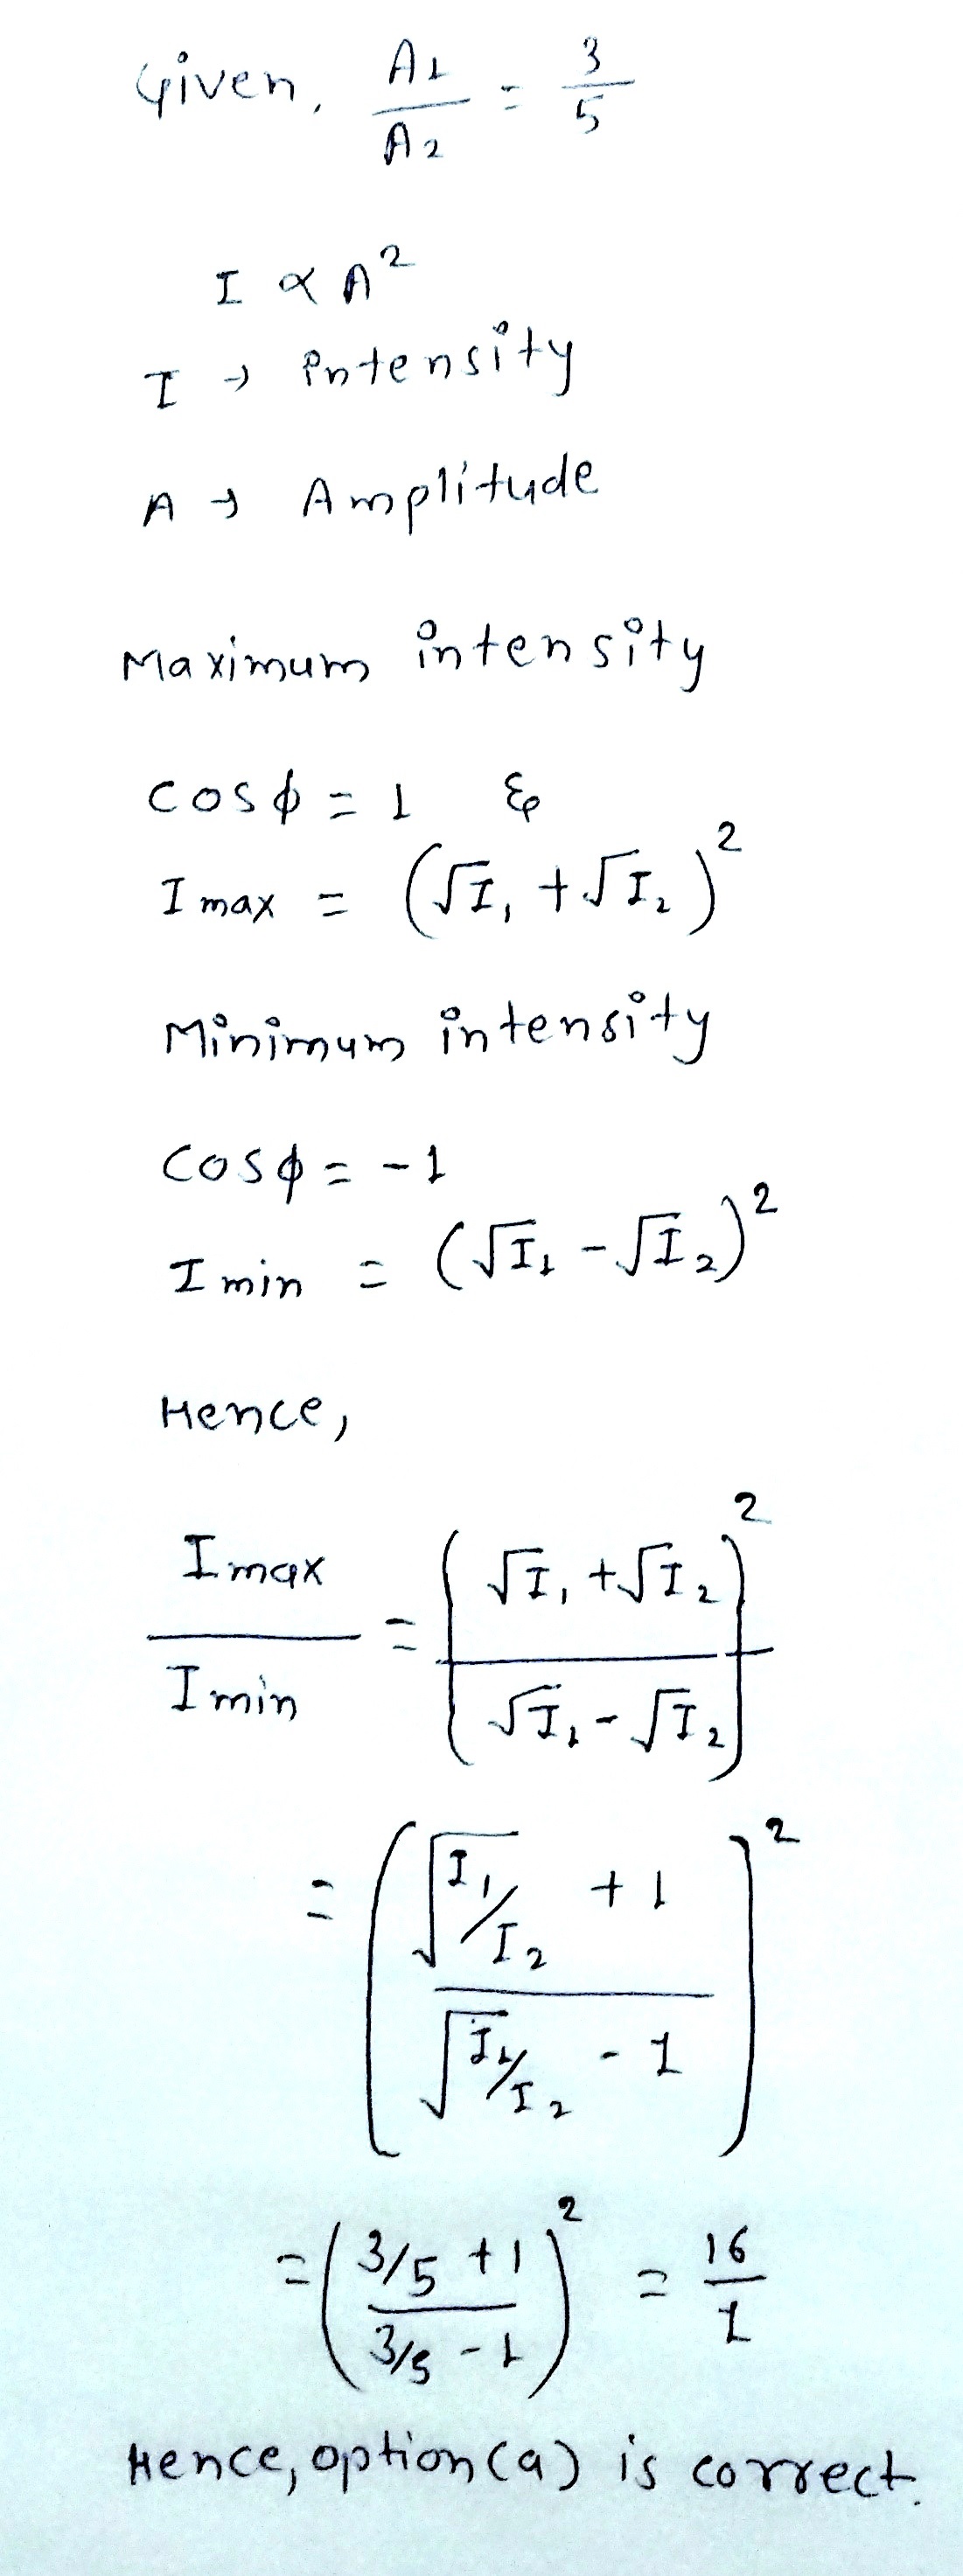 Given, A1/A2 = 3/5
I ∝ A²
I → intensity
A → Amplitude
Maximum intensity
cosϕ = 1 &
I max = (√I₁ + √I₂)²
Minimum intensity
cosϕ = -1
I min = (√I₁ - √I₂)²
Hence,
Imax/Imin = ((√I₁ + √I₂)/(√I₁ - √I₂))²
= ((√(I₁/I₂) + 1)/(√(I₁/I₂) - 1))²
= ((3/5 + 1)/(3/5 - 1))² = 16/1
Hence, option (a) is correct.